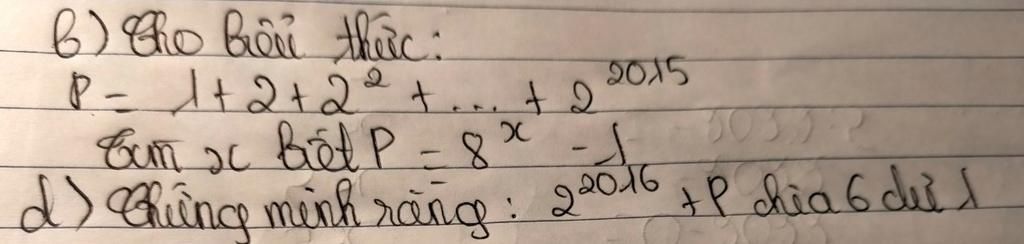 b) Cho biểu thức:
P = 1 + 2 + 2² + ... + 2²⁰¹⁵
Tìm x biết P = 8ˣ - 1
d) Chứng minh rằng: 2²⁰¹⁶ + P chia 6 dư 1